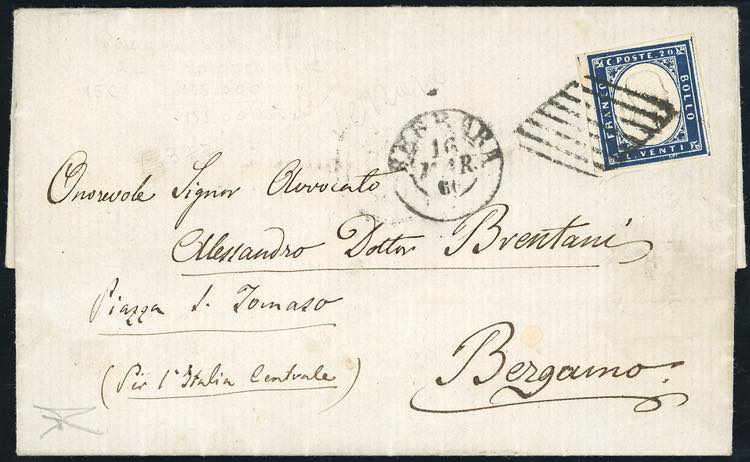 C. POSTE. 20
FRANCO
BOLLO
C. VENTI
16
MAR.
60
Onorevole Signor Avvocato
Alessandro Dottor Brentani
Piazza S. Tomaso
(Per l'Italia Centrale)
Bergamo.